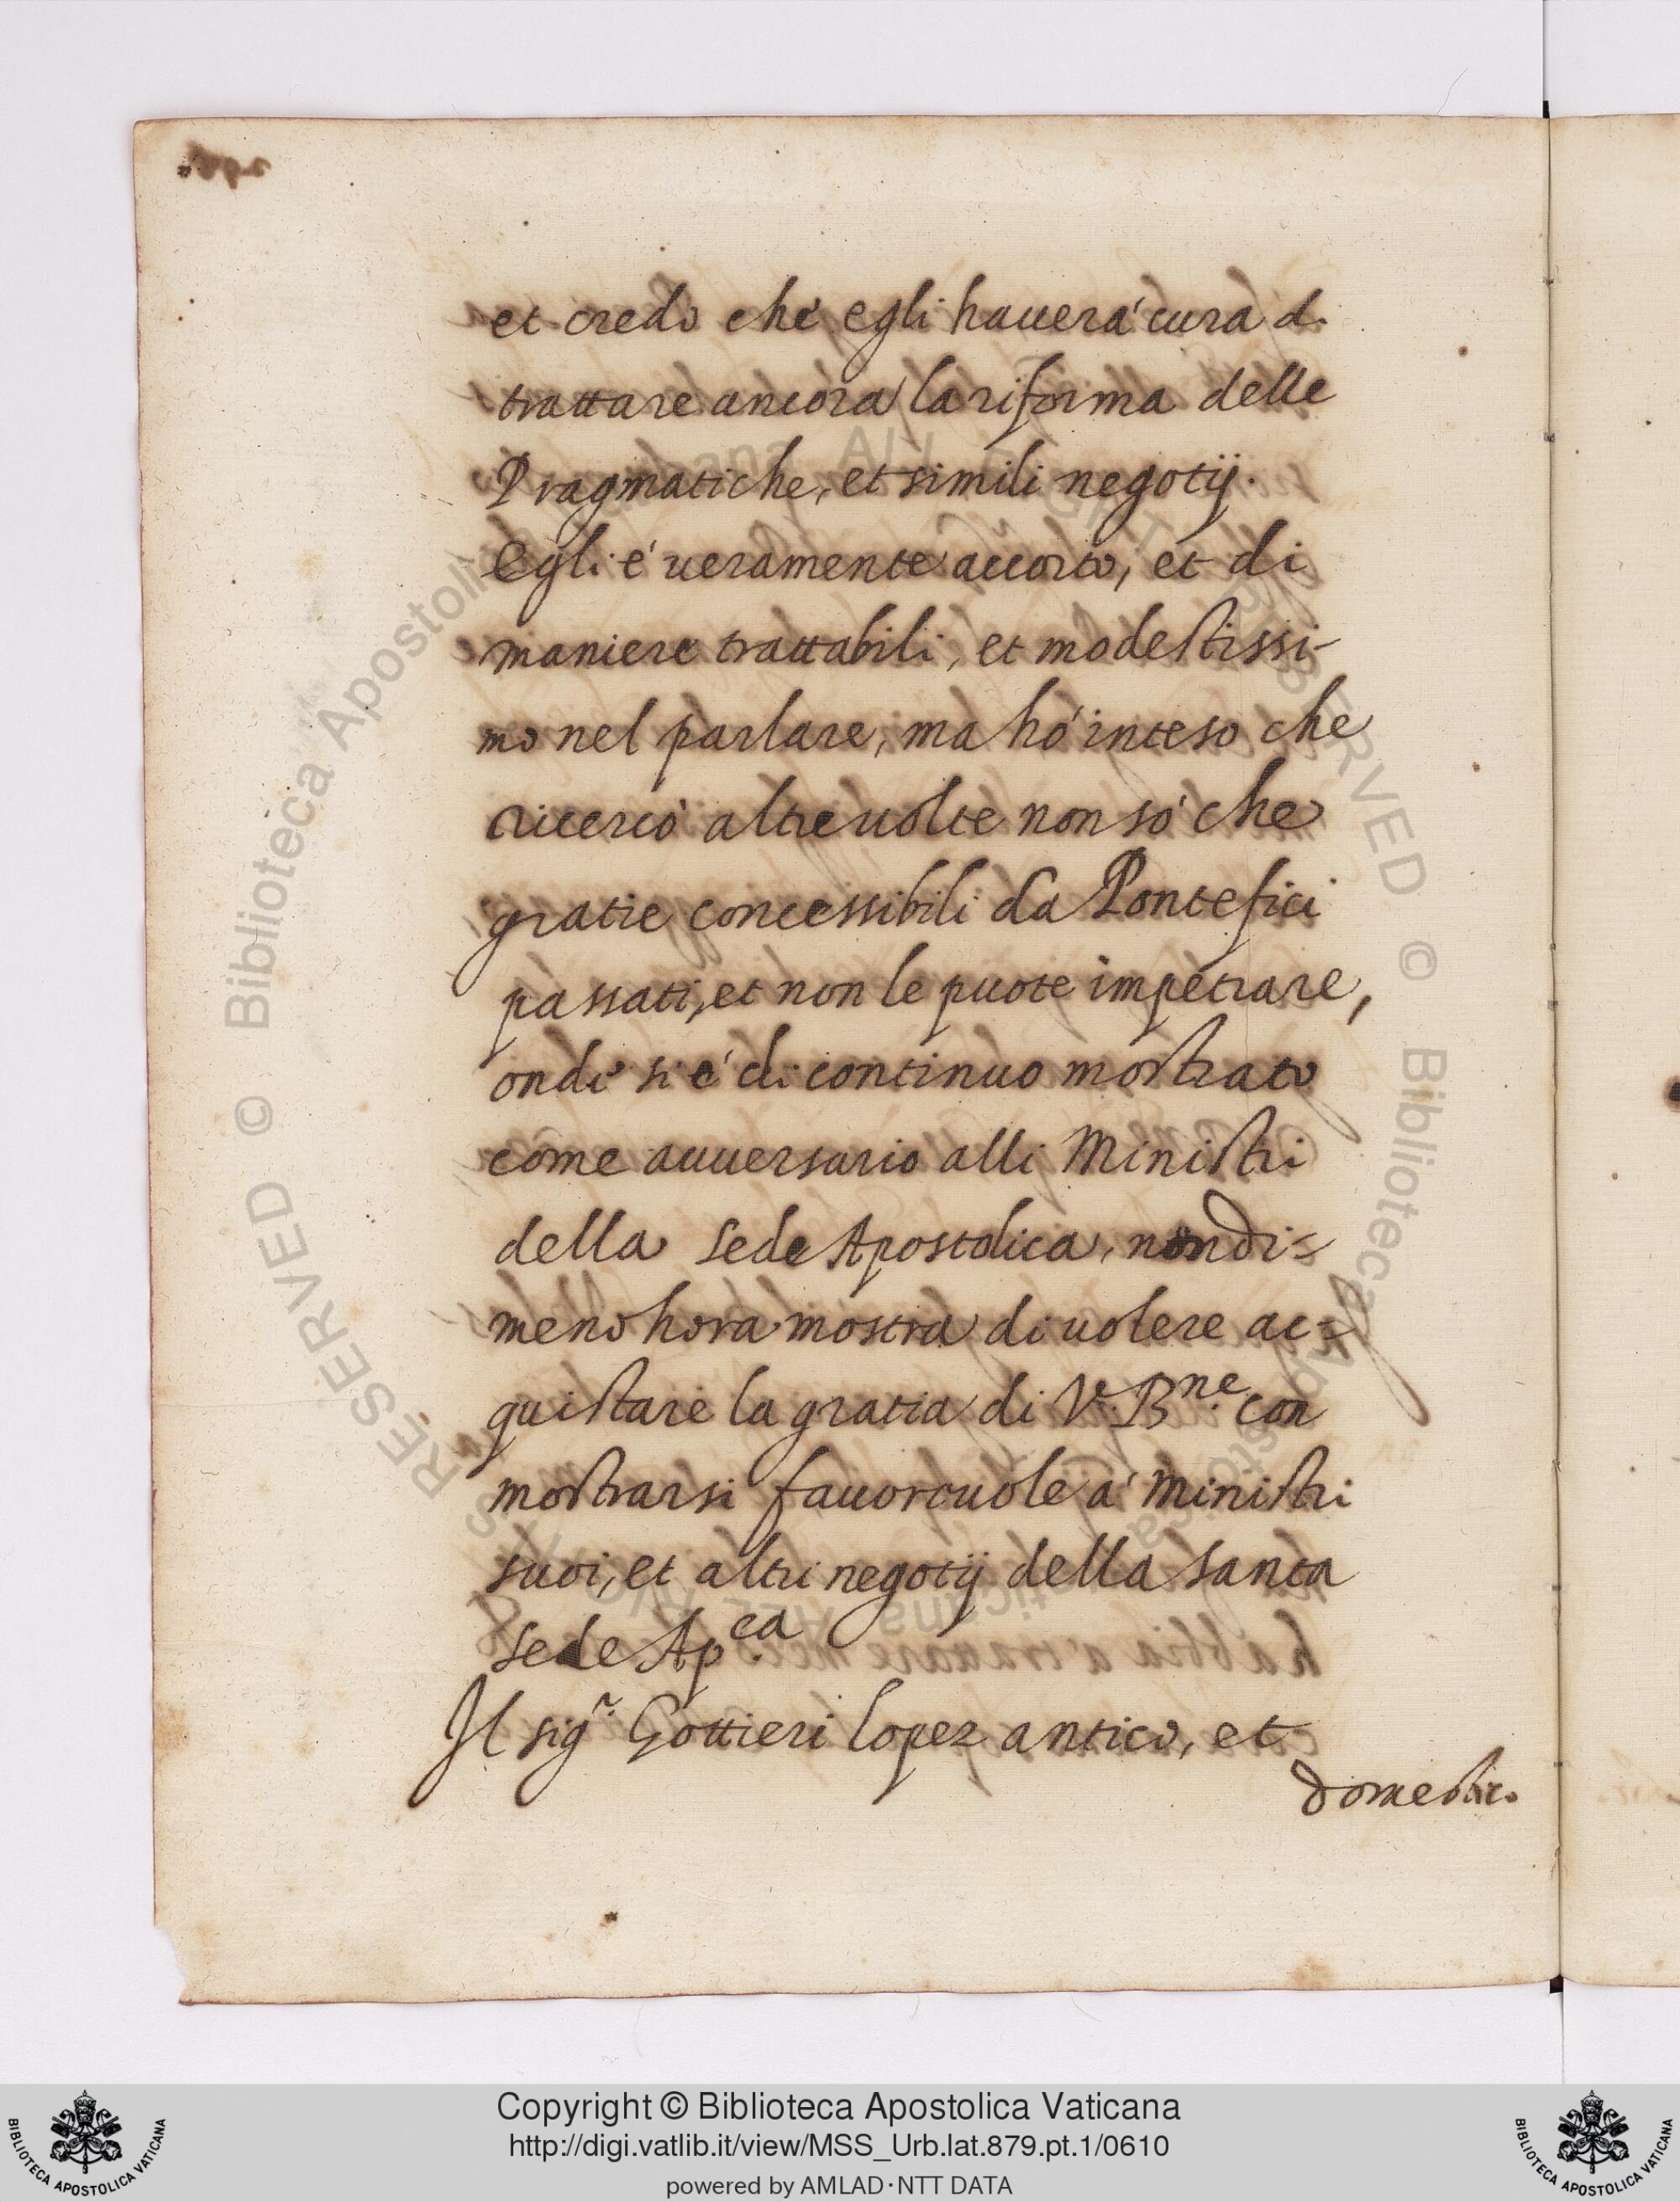 et credo che egli hauerá cura di
trattare ancora la riforma delle
Pragmatiche, et simili negotij.
Egli é ueramente accorto, et di
maniere trattabili, et modestissi-
mo nel parlare, ma hó inteso che
ricercò altre uolte non só che
gratie concessibili da Pontefici
passati, et non le puote impetrare,
onde si é di continuo mostrato
come auuersario alli Ministri
della Sede Apostolica, nondi=
meno hora mostra di uolere ac=
quistare la gratia di V. Bne. con
mostrarsi fauoreuole á Ministri
suoi, et altri negotij della Santa
Sede Ap.ca
Il sigr. Gottieri lopez antico, et
domestic.
© Biblioteca Apostolica Vaticana ALL RIGHTS RESERVED
Copyright © Biblioteca Apostolica Vaticana
http://digi.vatlib.it/view/MSS_Urb.lat.879.pt.1/0610
powered by AMLAD·NTT DATA
BIBLIOTECA APOSTOLICA VATICANA
BIBLIOTECA APOSTOLICA VATICANA